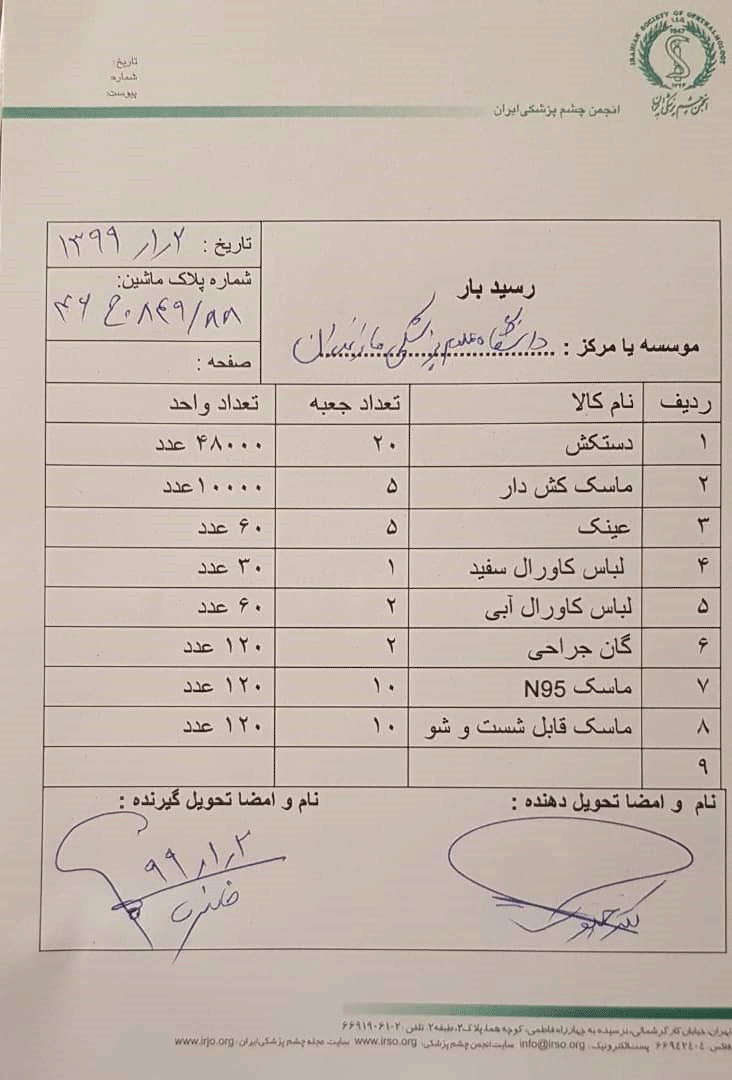 IRANIAN SOCIETY OF OPHTHALMOLOGY
1947
تاریخ:
شماره:
پیوست:
انجمن چشم پزشکی ایران
تاریخ : ۲ ر۱ر ۱۳۹۹
شماره پلاک ماشین:
صفحه :
رسید بار
موسسه یا مرکز : دانشگاه علوم پزشکی مازندران
ردیف نام کالا تعداد جعبه تعداد واحد
۱ دستکش ۲۰ ۴۸۰۰۰ عدد
۲ ماسک کش دار ۵ ۱۰۰۰۰ عدد
۳ عینک ۵ ۶۰ عدد
۴ لباس کاورال سفید ۱ ۳۰ عدد
۵ لباس کاورال آبی ۲ ۶۰ عدد
۶ گان جراحی ۲ ۱۲۰ عدد
۷ ماسک N95 ۱۰ ۱۲۰ عدد
۸ ماسک قابل شست و شو ۱۰ ۱۲۰ عدد
۹
نام و امضا تحویل دهنده :
نام و امضا تحویل گیرنده :
تهران، خیابان کارگر شمالی، نرسیده به چهارراه فاطمی، کوچه هما، پلاک۲، طبقه۲ تلفن: ۲-۶۶۹۱۹۰۶۱
فاکس: ۶۶۹۴۲۴۰۴ پست الکترونیک: info@irso.org سایت انجمن چشم پزشکی: www.irso.org سایت مجله چشم پزشکی ایران: www.irjo.org